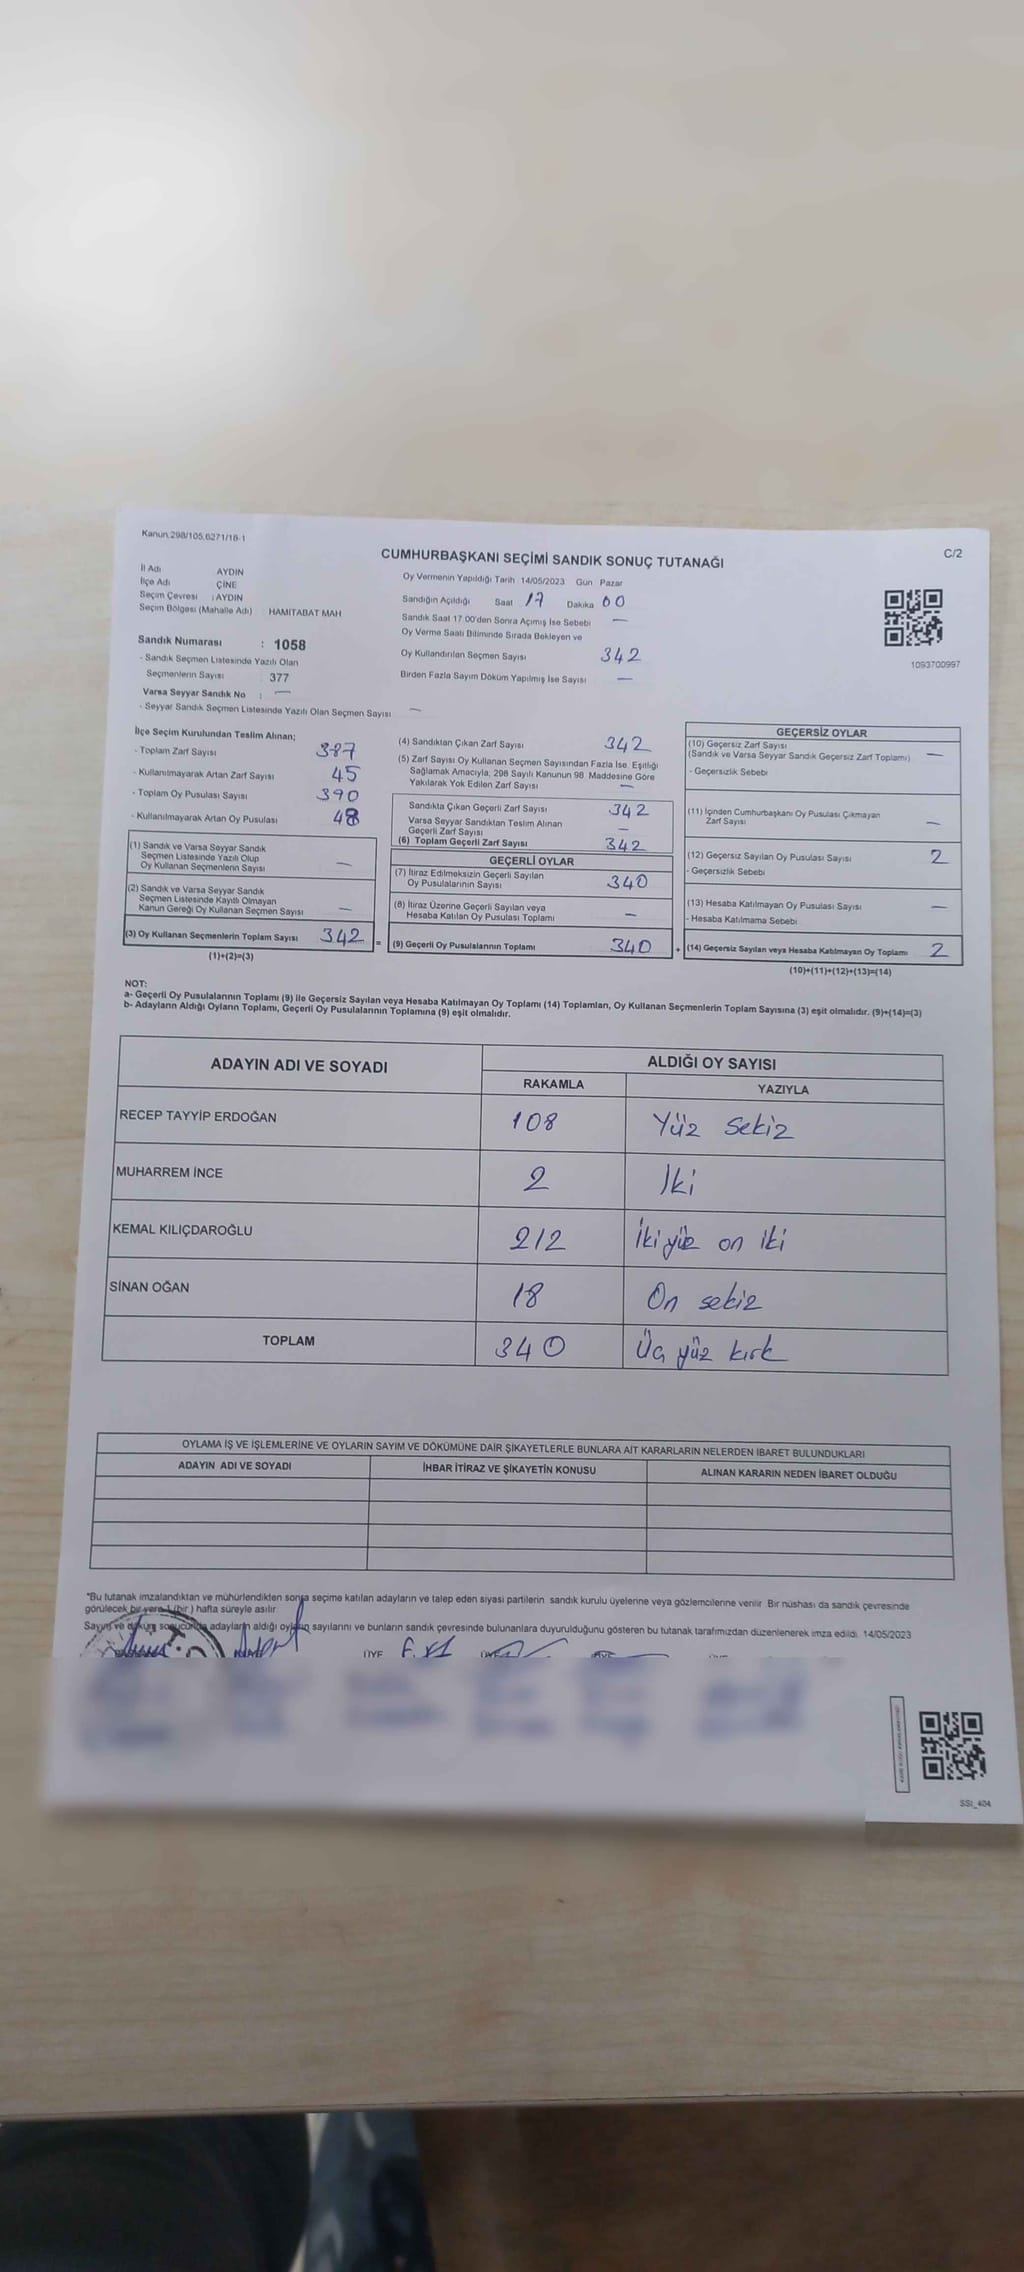 Kanun.298/105,6271/16-1
C/2
CUMHURBAŞKANI SEÇİMİ SANDIK SONUÇ TUTANAĞI
İl Adı AYDIN
İlçe Adı ÇİNE
Seçim Çevresi : AYDIN
Seçim Bölgesi (Mahalle Adı) : HAMİTABAT MAH
Sandık Numarası : 1058
- Sandık Seçmen Listesinde Yazılı Olan
Seçmenlerin Sayısı : 377
Varsa Seyyar Sandık No : —
- Seyyar Sandık Seçmen Listesinde Yazılı Olan Seçmen Sayısı —
Oy Vermenin Yapıldığı Tarih 14/05/2023 Gün Pazar
Sandığın Açıldığı Saat 17 Dakika 00
Sandık Saat 17.00'den Sonra Açımış İse Sebebi —
Oy Verme Saati Bitiminde Sırada Bekleyen ve
Oy Kullandırılan Seçmen Sayısı 342
Birden Fazla Sayım Döküm Yapılmış İse Sayısı —
1093700997
İlçe Seçim Kurulundan Teslim Alınan;
- Toplam Zarf Sayısı 387
- Kullanılmayarak Artan Zarf Sayısı 45
- Toplam Oy Pusulası Sayısı 390
- Kullanılmayarak Artan Oy Pusulası 48
(1) Sandık ve Varsa Seyyar Sandık
Seçmen Listesinde Yazılı Olup
Oy Kullanan Seçmenlerin Sayısı —
(2) Sandık ve Varsa Seyyar Sandık
Seçmen Listesinde Kayıtlı Olmayan
Kanun Gereği Oy Kullanan Seçmen Sayısı —
(3) Oy Kullanan Seçmenlerin Toplam Sayısı 342 =
(1)+(2)=(3)
(4) Sandıktan Çıkan Zarf Sayısı 342
(5) Zarf Sayısı Oy Kullanan Seçmen Sayısından Fazla İse, Eşitliği
Sağlamak Amacıyla, 298 Sayılı Kanunun 98. Maddesine Göre
Yakılarak Yok Edilen Zarf Sayısı —
Sandıkta Çıkan Geçerli Zarf Sayısı 342
Varsa Seyyar Sandıktan Teslim Alınan
Geçerli Zarf Sayısı —
(6) Toplam Geçerli Zarf Sayısı 342
GEÇERLİ OYLAR
(7) İtiraz Edilmeksizin Geçerli Sayılan
Oy Pusulalarının Sayısı 340
(8) İtiraz Üzerine Geçerli Sayılan veya
Hesaba Katılan Oy Pusulası Toplamı —
(9) Geçerli Oy Pusulalarının Toplamı 340 +
GEÇERSİZ OYLAR
(10) Geçersiz Zarf Sayısı
(Sandık ve Varsa Seyyar Sandık Geçersiz Zarf Toplamı) —
- Geçersizlik Sebebi
(11) İçinden Cumhurbaşkanı Oy Pusulası Çıkmayan
Zarf Sayısı —
(12) Geçersiz Sayılan Oy Pusulası Sayısı 2
- Geçersizlik Sebebi
(13) Hesaba Katılmayan Oy Pusulası Sayısı —
- Hesaba Katılmama Sebebi
(14) Geçersiz Sayılan veya Hesaba Katılmayan Oy Toplamı 2
(10)+(11)+(12)+(13)=(14)
NOT:
a- Geçerli Oy Pusulalarının Toplamı (9) ile Geçersiz Sayılan veya Hesaba Katılmayan Oy Toplamı (14) Toplamları, Oy Kullanan Seçmenlerin Toplam Sayısına (3) eşit olmalıdır. (9)+(14)=(3)
b- Adayların Aldığı Oyların Toplamı, Geçerli Oy Pusulalarının Toplamına (9) eşit olmalıdır.
ADAYIN ADI VE SOYADI ALDIĞI OY SAYISI
RAKAMLA YAZIYLA
RECEP TAYYİP ERDOĞAN 108 Yüz Sekiz
MUHARREM İNCE 2 İki
KEMAL KILIÇDAROĞLU 212 İkiyüz on iki
SİNAN OĞAN 18 On sekiz
TOPLAM 340 Üç yüz kırk
OYLAMA İŞ VE İŞLEMLERİNE VE OYLARIN SAYIM VE DÖKÜMÜNE DAİR ŞİKAYETLERLE BUNLARA AİT KARARLARIN NELERDEN İBARET BULUNDUKLARI
ADAYIN ADI VE SOYADI İHBAR İTİRAZ VE ŞİKAYETİN KONUSU ALINAN KARARIN NEDEN İBARET OLDUĞU
"Bu tutanak imzalandıktan ve mühürlendikten sonra seçime katılan adayların ve talep eden siyasi partilerin sandık kurulu üyelerine ve gözlemcilerine verilir. Bir nüshası da sandık çevresinde
görülecek bir yere 1 (bir) hafta süreyle asılır.
Sayım ve döküm sonucunda adayların aldığı oyların sayılarını ve bunların sandık çevresinde bulunanlara duyurulduğunu gösteren bu tutanak tarafımızdan düzenlenerek imza edildi. 14/05/2023
ÜYE ÜYE ÜYE
SSI_404